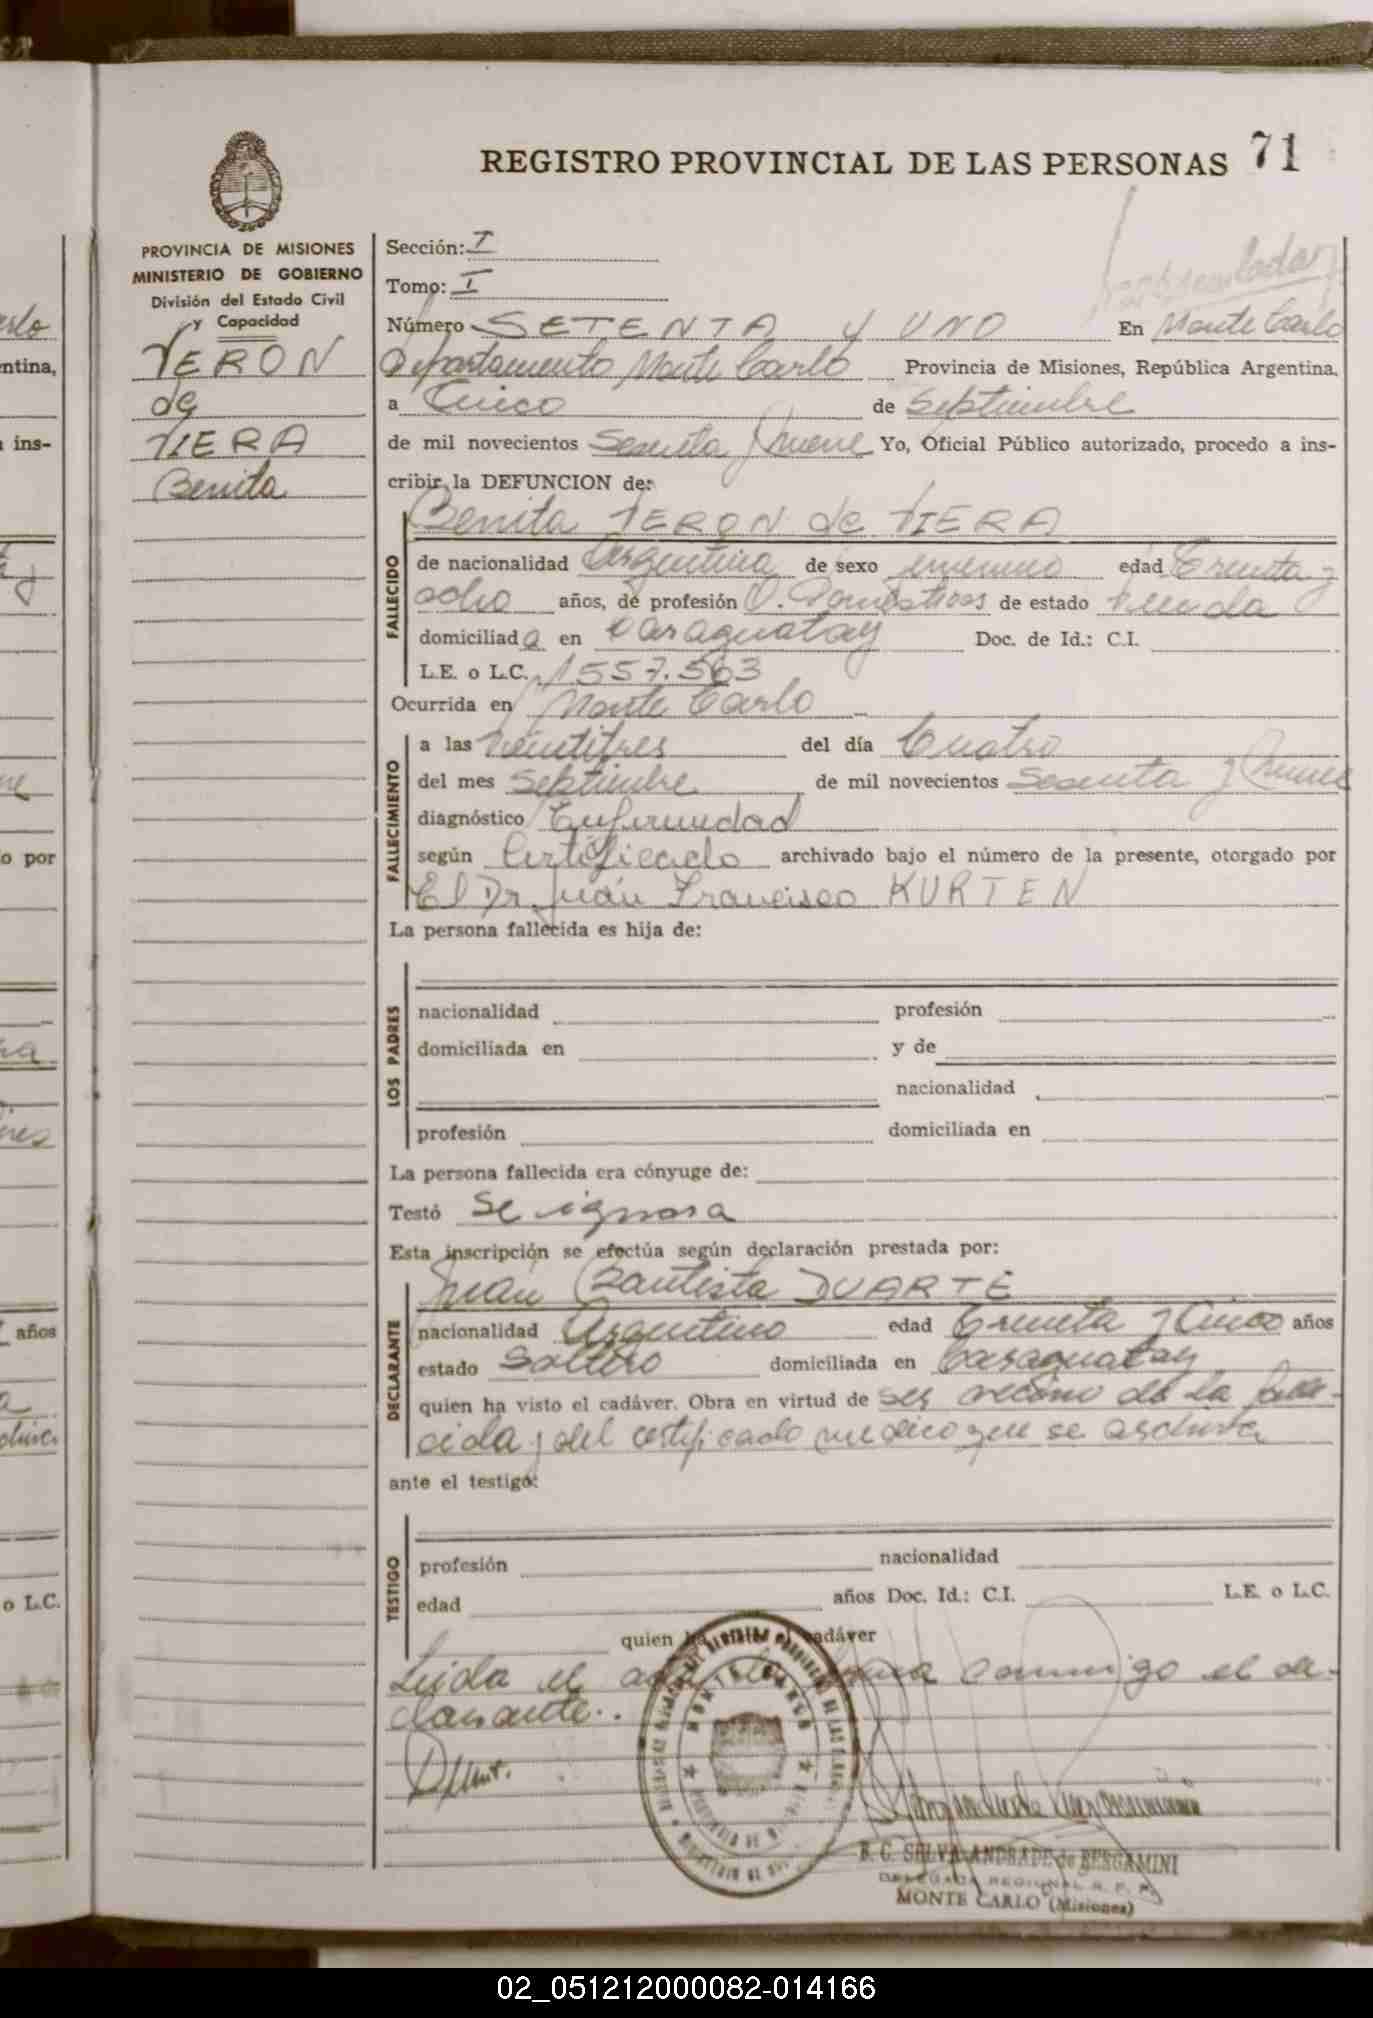 REGISTRO PROVINCIAL DE LAS PERSONAS 71
PROVINCIA DE MISIONES
MINISTERIO DE GOBIERNO
División del Estado Civil
y Capacidad
VERON
de
VIERA
Benita
Sección: I
Tomo: I
Número SETENTA y UNO En Monte Carlo
Departamento Monte Carlo Provincia de Misiones, República Argentina,
a Cinco de Septiembre
de mil novecientos Sesenta y Nueve Yo, Oficial Público autorizado, procedo a ins-
cribir la DEFUNCION de:
Benita VERON de VIERA
FALLECIDO
de nacionalidad Argentina de sexo femenino edad Treinta y
ocho años, de profesión Q. Domésticos de estado viuda
domiciliada en Caraguatay Doc. de Id.: C.I.
L.E. o L.C. 1.557.563
Ocurrida en Monte Carlo
FALLECIMIENTO
a las Veintitres del día Cuatro
del mes Septiembre de mil novecientos Sesenta y Nueve
diagnóstico Enfermedad
según Certificado archivado bajo el número de la presente, otorgado por
El Dr. Juan Francisco KURTEN
La persona fallecida es hija de:
LOS PADRES
nacionalidad profesión
domiciliada en y de
nacionalidad
profesión domiciliada en
La persona fallecida era cónyuge de:
Testó Se ignora
Esta inscripción se efectúa según declaración prestada por:
Juan Bautista DUARTE
DECLARANTE
nacionalidad Argentino edad Treinta y Cinco años
estado Soltero domiciliada en Caraguatay
quien ha visto el cadáver. Obra en virtud de ser vecino de la falle-
cida y del certificado medico que se archiva
ante el testigo:
TESTIGO
profesión nacionalidad
edad años Doc. Id.: C.I. L.E. o L.C.
quien ha cadáver
Leida el acta la firma conmigo el de-
clarante..
MONTE CARLO
PROVINCIA DE MISIONES
B. C. SELVA ANDRADE de BERGAMINI
DELEGADA REGIONAL R. P. P.
MONTE CARLO (Misiones)
rlo
ntina,
ins-
o por
años
o L.C.
02_051212000082-014166